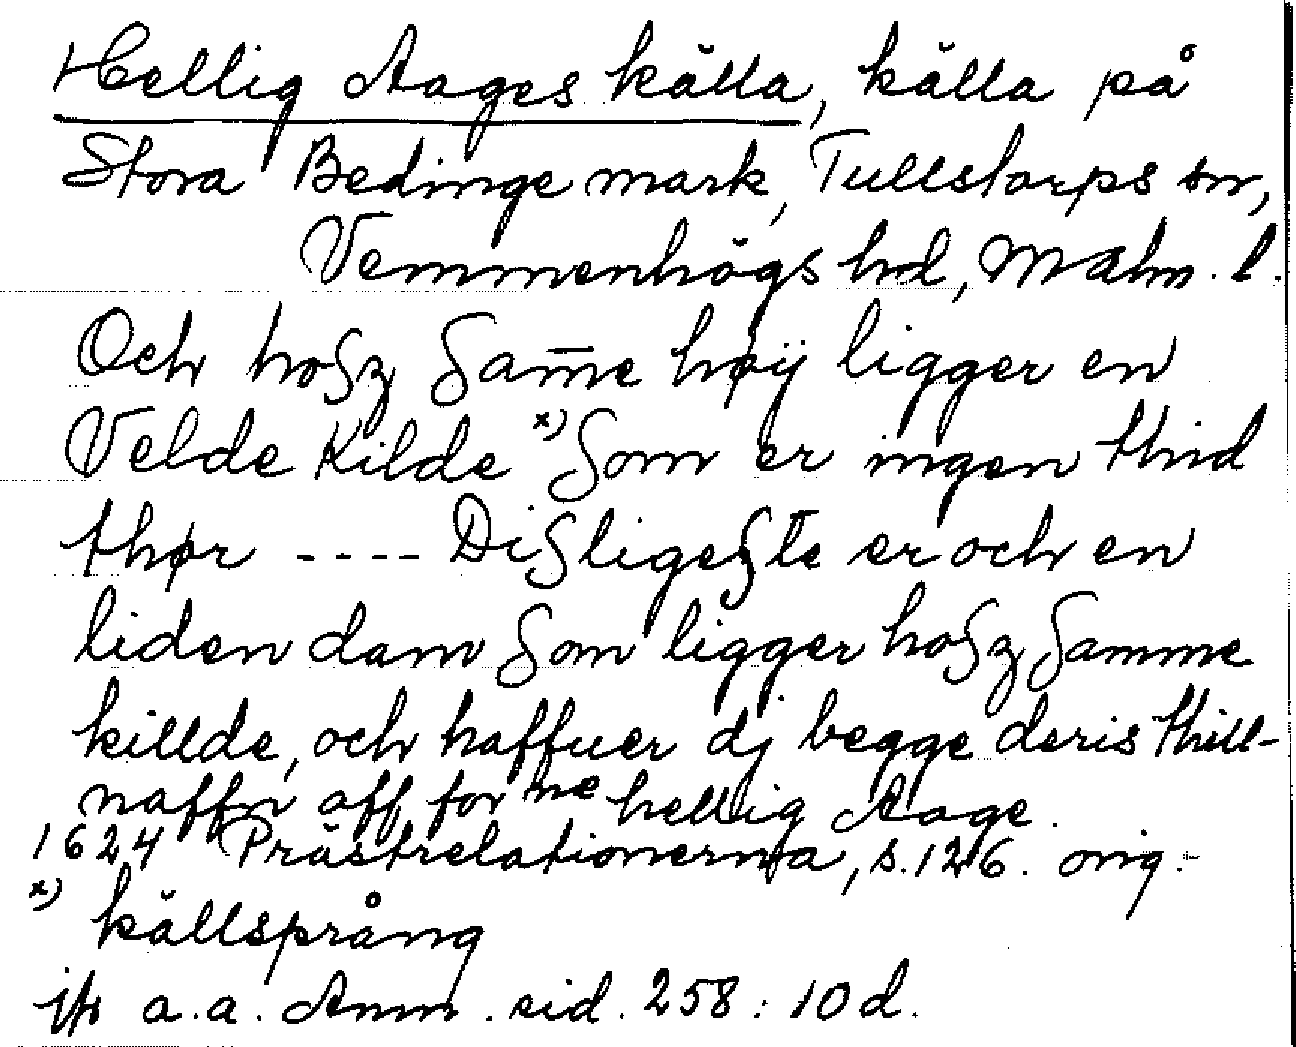 Hellig Aages källa, källa på
Stora Bedinge mark, Tullstorps sn,
Vemmenhögs hd, Malm. l.
Och hoſz ſam̄e høÿ ligger en
Velde Kilde x) ſom er ingen thind
thør ---- Diſligeſte er och en
liden dam ſom ligger hoſz ſamme
killde, och haffuer dj begge deris thill-
naffn aff for ne hellig Aage.
1624 Prästrelationerna, s. 126. orig.
x) källsprång
jfr a.a. Anm. sid. 258: 10 d.